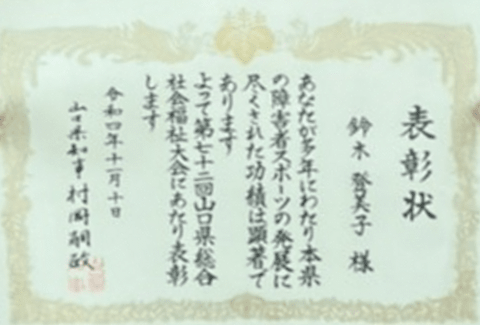 表彰状
鈴木登美子 様
あなたが多年にわたり本県
の障害者スポーツの発展に
尽くされた功績は顕著で
あります
よって第七十二回山口県総合
社会福祉大会にあたり表彰
します
令和四年十一月十日
山口県知事 村岡嗣政